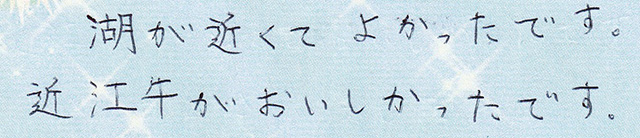 湖が近くて よかったです。
近江牛がおいしかったです。